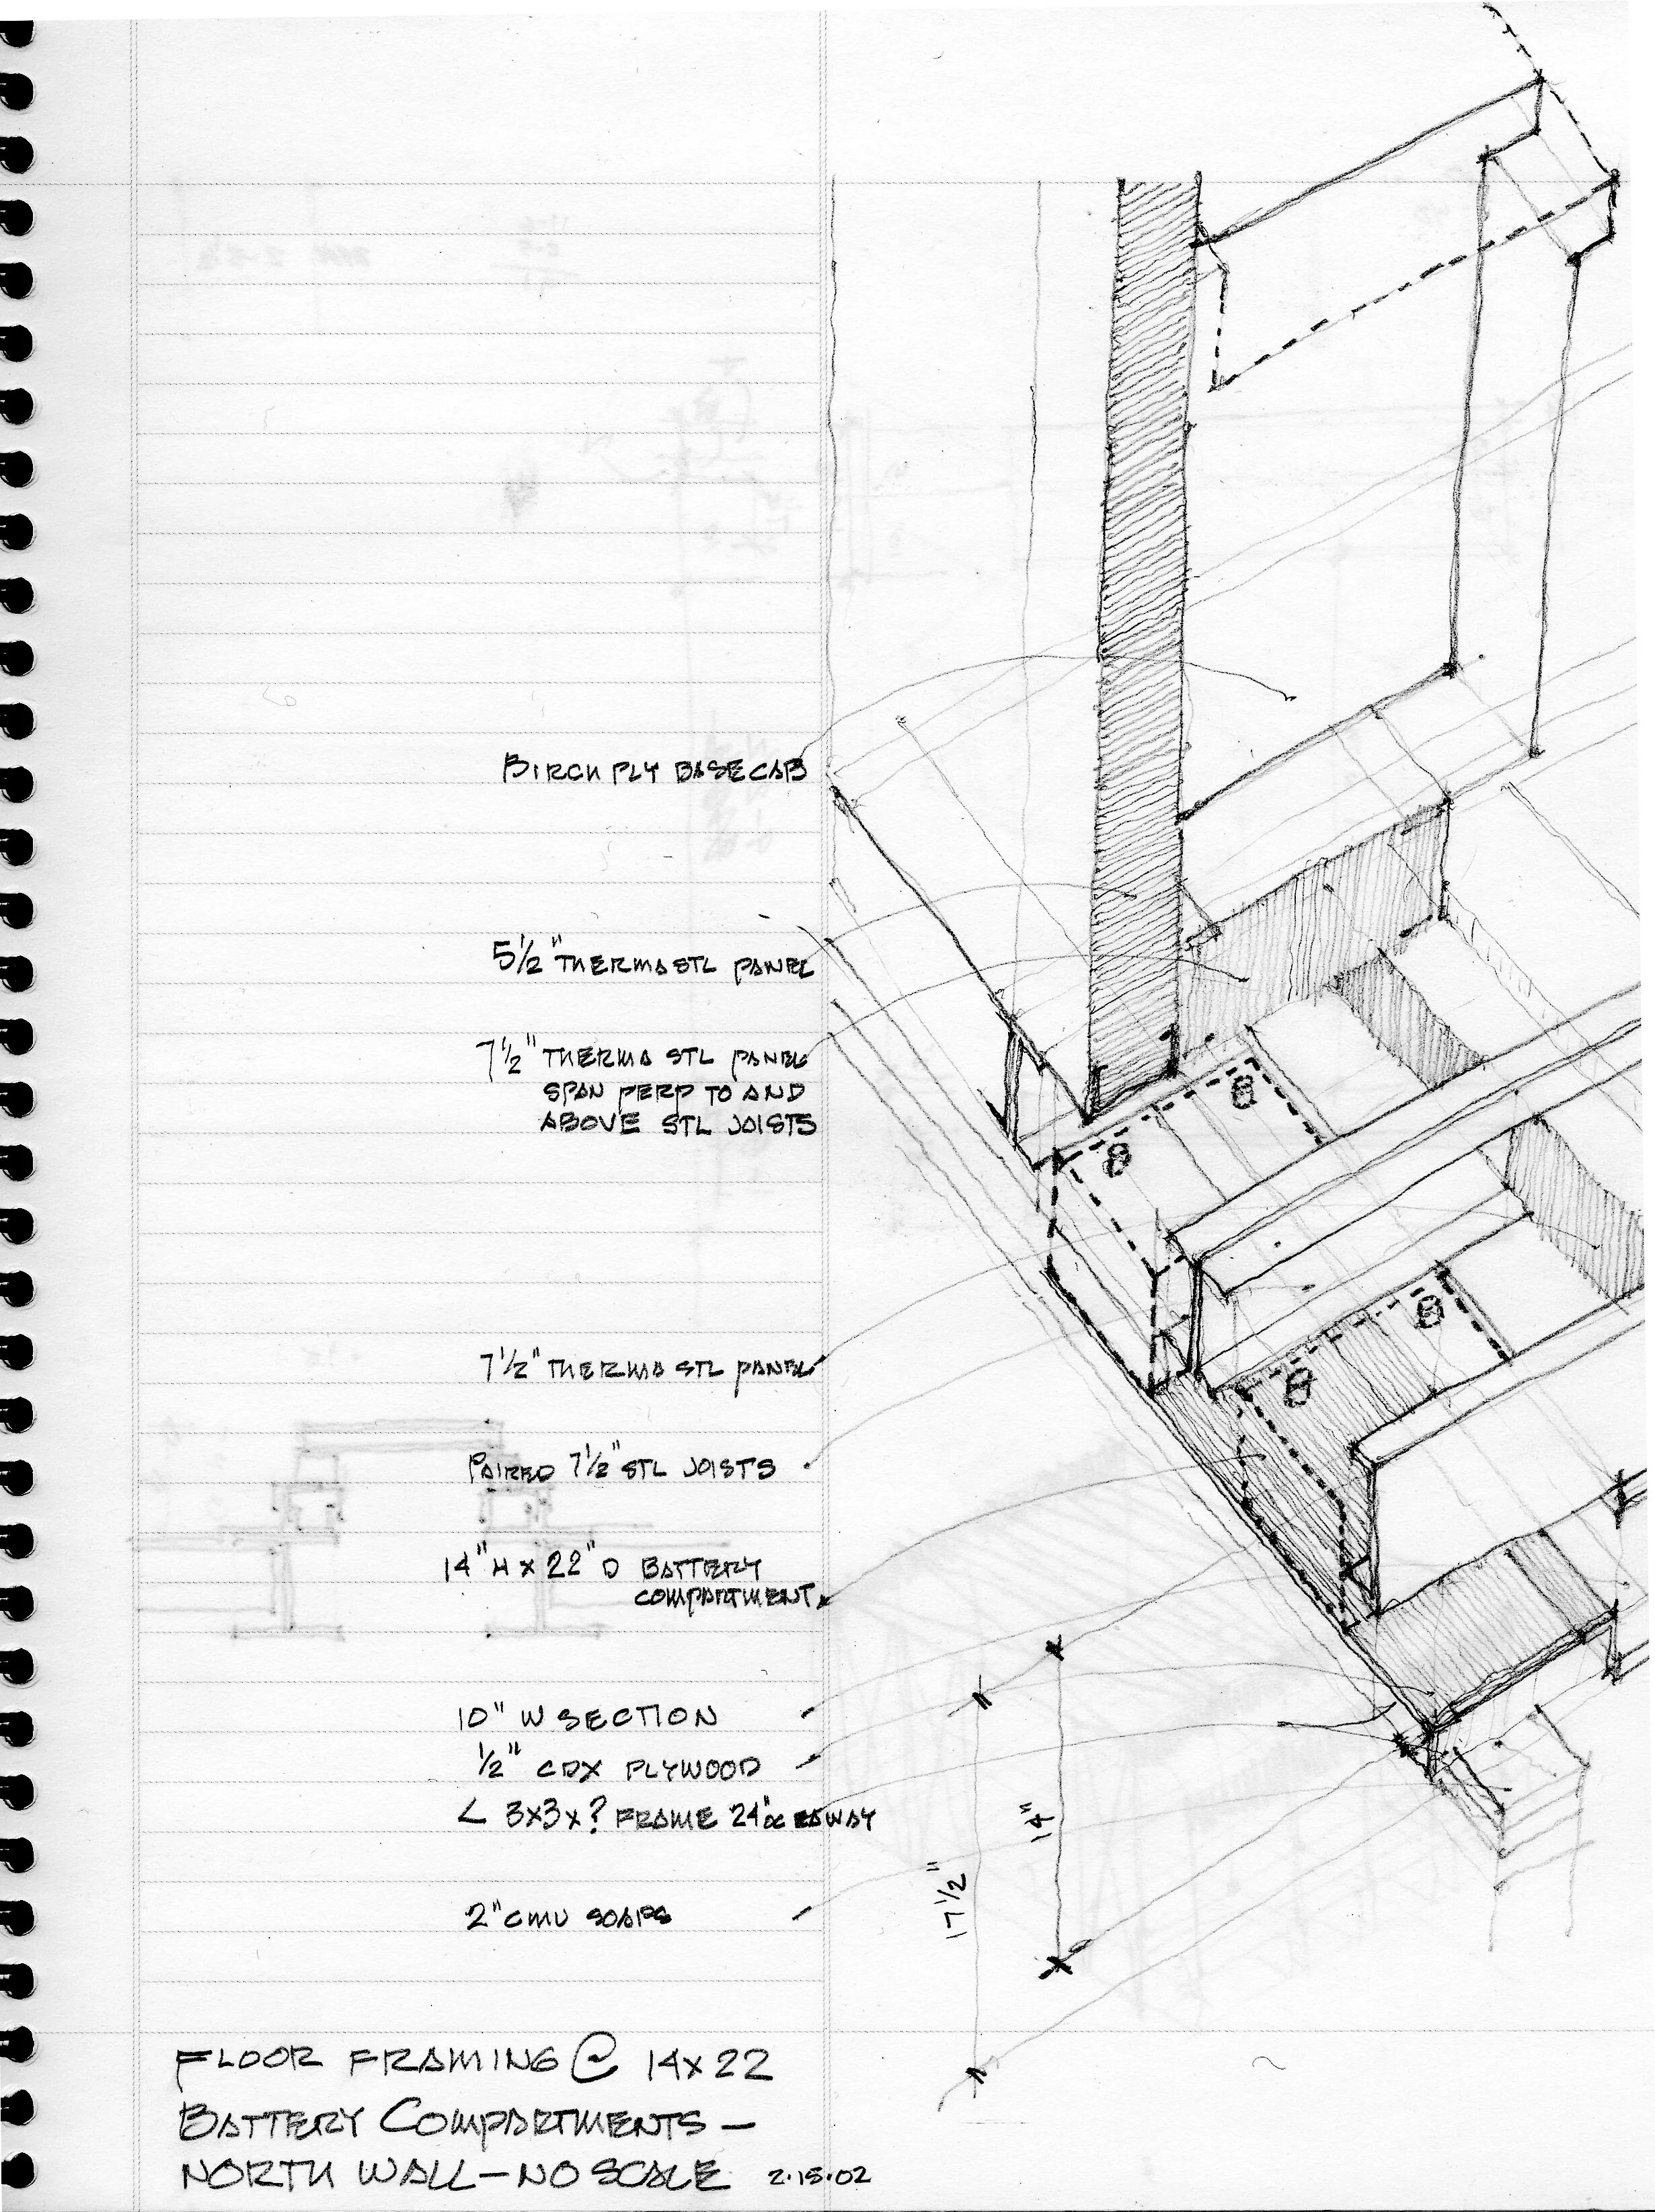 BIRCH PLY BASECAB
5½" THERMASTL PANEL
7½" THERMA STL PANEL
SPAN PERP TO AND
ABOVE STL JOISTS
7½" THERMA STL PANEL
PAIRED 7½" STL JOISTS
14" H X 22" D BATTERY
COMPARTMENT
10" W SECTION
½" CDX PLYWOOD
∠ 3X3X? FRAME 24"OC EAWAY
2" CMU SOAPS
14"
17½"
FLOOR FRAMING @ 14X22
BATTERY COMPARTMENTS —
NORTH WALL — NO SCALE 2.15.02